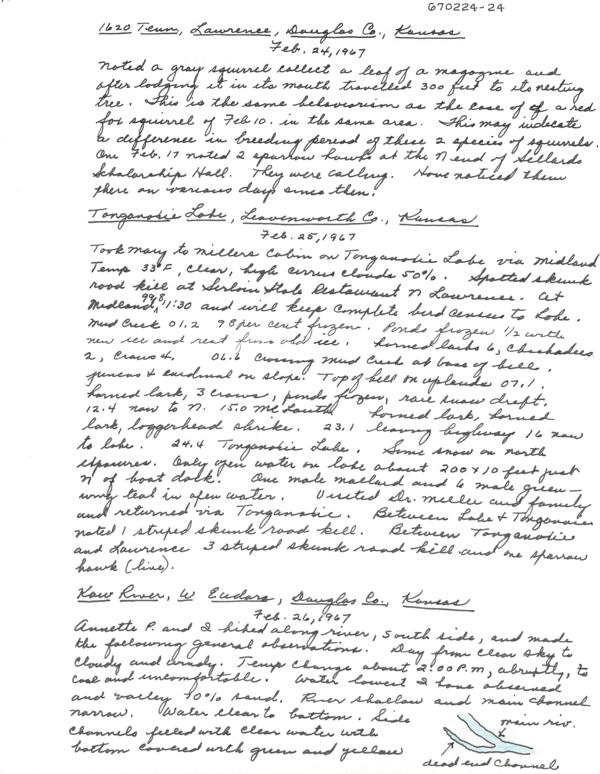 670224-24
1620 Tenn, Lawrence, Douglas Co., Kansas
Feb. 24, 1967
Noted a gray squirrel collect a leaf of a magazine and
after lodging it in its mouth travelled 300 feet to its nesting
tree. This is the same behaviorism as the case of of a red
fox squirrel of Feb 10. in the same area. This may indicate
a difference in breeding period of these 2 species of squirrels.
One Feb. 17 noted 2 sparrow hawks at the N end of Sellards
Scholarship Hall. They were calling. Have noticed them
there on various days since then.
Tonganoxie Lake, Leavenworth Co., Kansas
Feb. 25, 1967
Took Mary to Millers Cabin on Tonganoxie Lake via Midland
Temp 33°F, clear, high cirrus clouds 50%. Spotted skunk
road kill at Sirloin Stole Restaurant N Lawrence. At
Midland, 99.8, 11:30 and will keep complete bird census to Lake.
Mud Creek 01.2 98 per cent frozen. Ponds frozen 1/2 with
new ice and rest firm old ice. Horned larks 6, chickadees
2, crows 4. 06.6 crossing Mud Creek at base of hill.
juncos & cardinal on slope. Top of hill on uplands 07.1,
horned lark, 3 crows, ponds frozen, rare snow drift,
12.4 now to N. 15.0 McLouth horned lark, horned
lark, loggerhead shrike. 23.1 leaving highway 16 now
to lake. 24.4 Tonganoxie Lake. Some snow on north
exposures. Only open water on lake about 200 x 10 feet just
N of boat dock. One male mallard and 6 male green-
wing teal in open water. Visited Dr. Miller and family
and returned via Tonganoxie. Between Lake & Tonganoxie
noted 1 striped skunk road kill. Between Tonganoxie
and Lawrence 3 striped skunk road kill and one sparrow
hawk (live).
Kaw River, W Eudora, Douglas Co., Kansas
Feb. 26, 1967
Annette P. and I hiked along river, south side, and made
the following general observations. Day from clear sky to
cloudy and windy. Temp change about 2:00 P.M., abruptly, to
cool and uncomfortable. Water lowest I have observed
and valley 90% sand. River shallow and main channel
narrow. Water clear to bottom. Side
channels filled with clear water with
bottom covered with green and yellow
main riv.
dead end channel